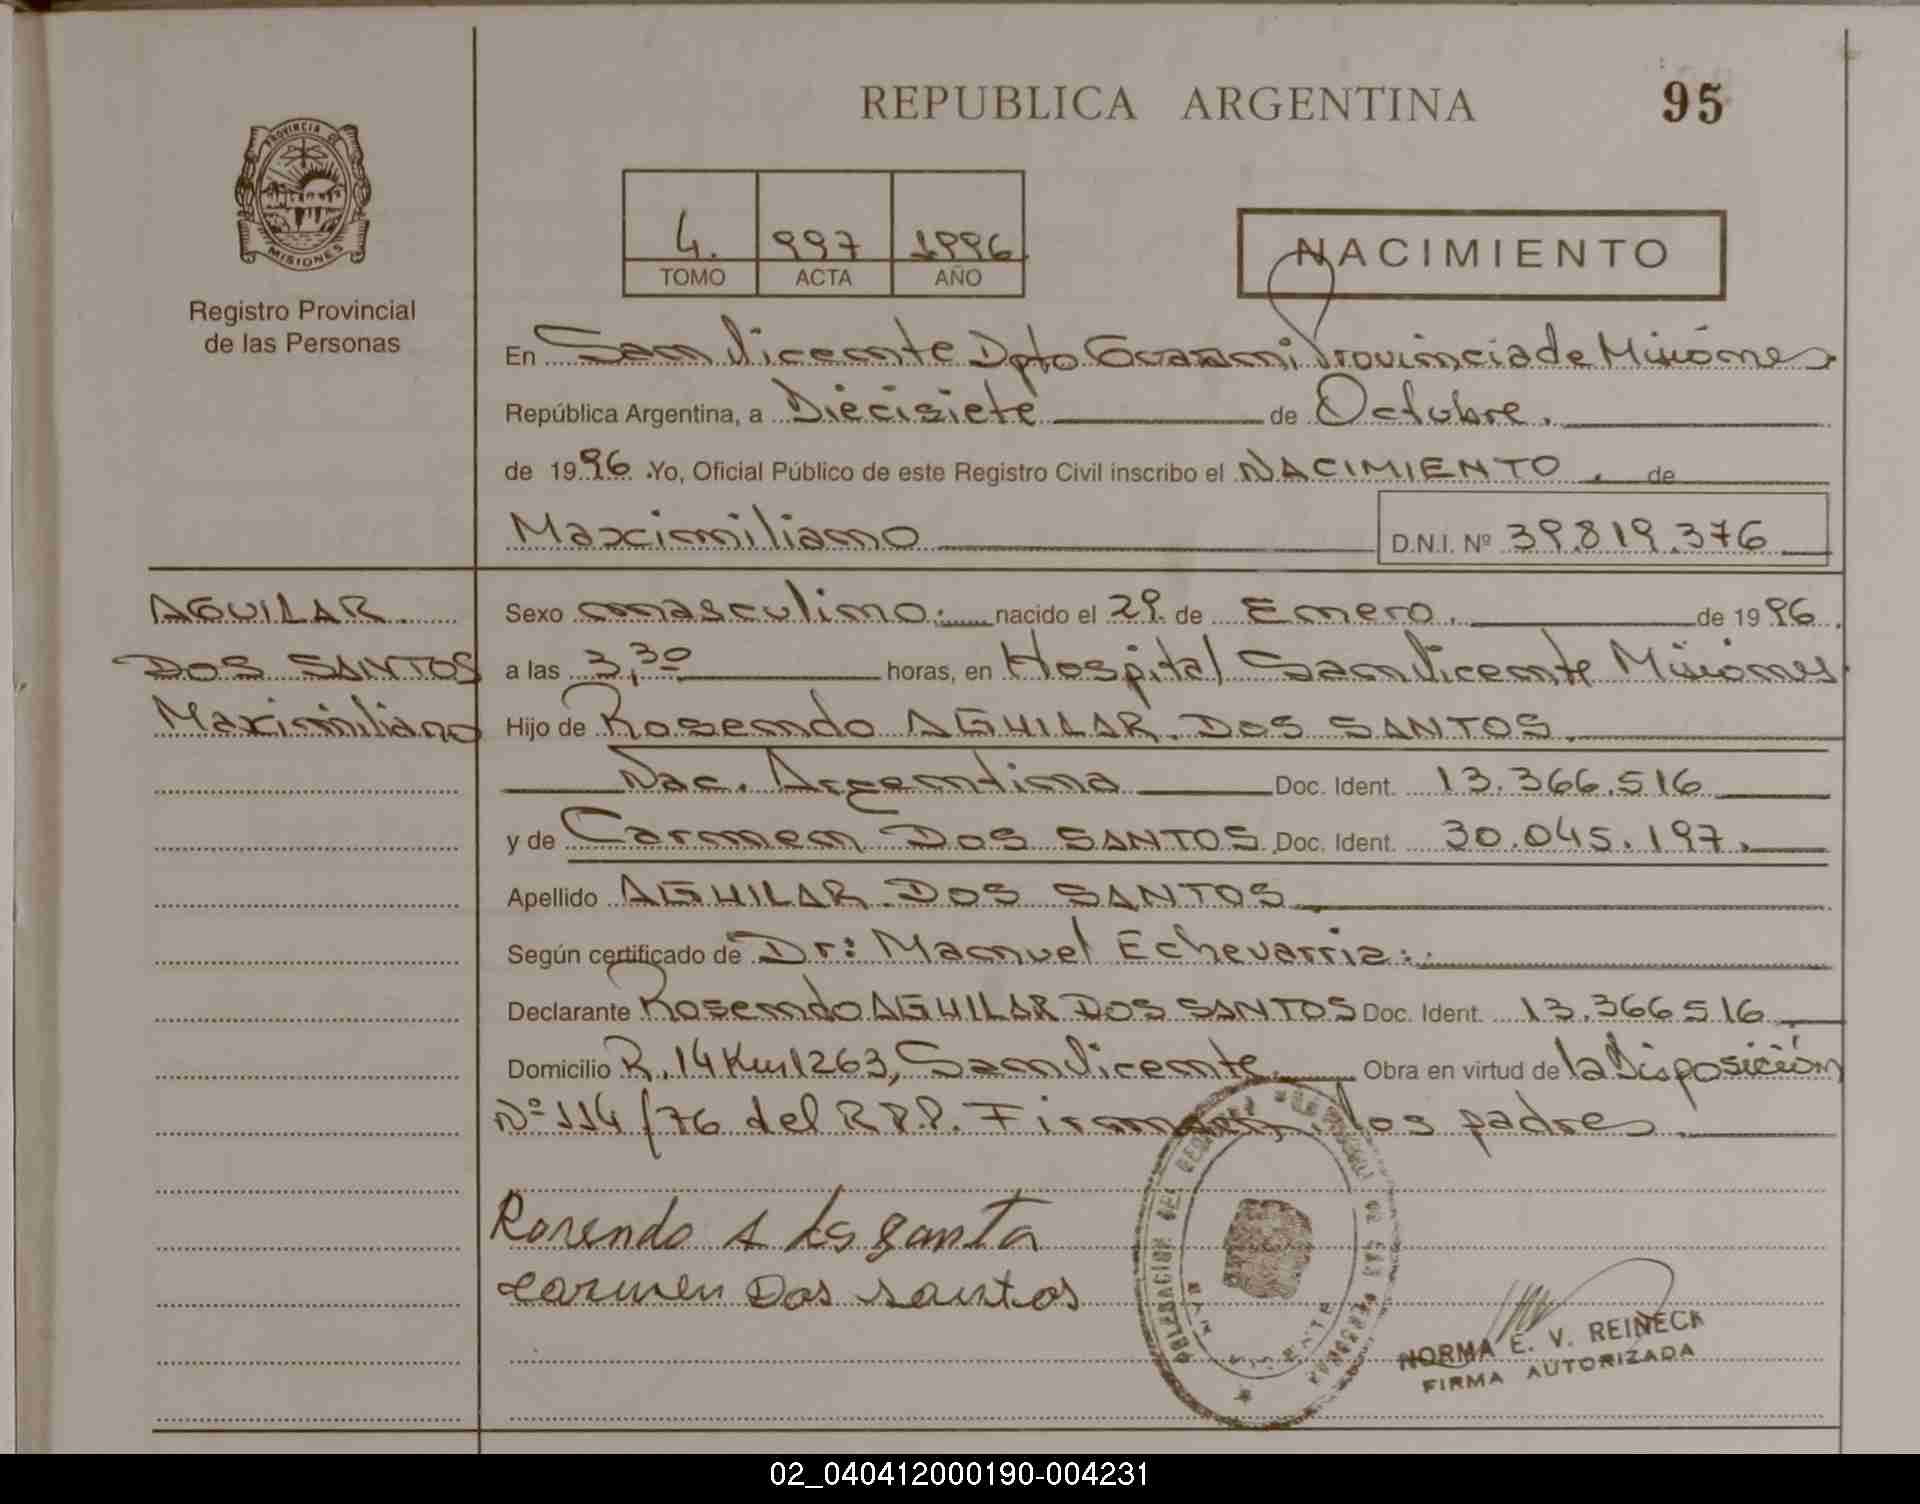 REPUBLICA ARGENTINA
95
PROVINCIA DE
MISIONES
Registro Provincial
de las Personas
4. 997 1996
TOMO ACTA AÑO
NACIMIENTO
En San Vicente Dpto Guaraní Provincia de Misiones
República Argentina, a Diecisiete de Octubre.
de 1996 Yo, Oficial Público de este Registro Civil inscribo el NACIMIENTO. de
Maximiliano D.N.I. Nº 39.819.376
AGUILAR
DOS SANTOS
Maximiliano
Sexo masculino. nacido el 29. de Enero. de 1996.
a las 3,30 horas, en Hospital San Vicente Misiones
Hijo de Rosendo AGUILAR DOS SANTOS.
Nac. Argentina Doc. Ident. 13.366.516
y de Carmen DOS SANTOS Doc. Ident. 30.045.197.
Apellido AGUILAR DOS SANTOS
Según certificado de Dr: Manuel Echevarria:
Declarante Rosendo AGUILAR DOS SANTOS Doc. Ident. 13.366516
Domicilio R. 14 Km 1263, San Vicente. Obra en virtud de la Disposición
Nº 114/76 del R.P.P. Firman los padres
Rosendo A
Carmen Dos santos
NORMA E. V. REINECK
FIRMA AUTORIZADA
02_040412000190-004231